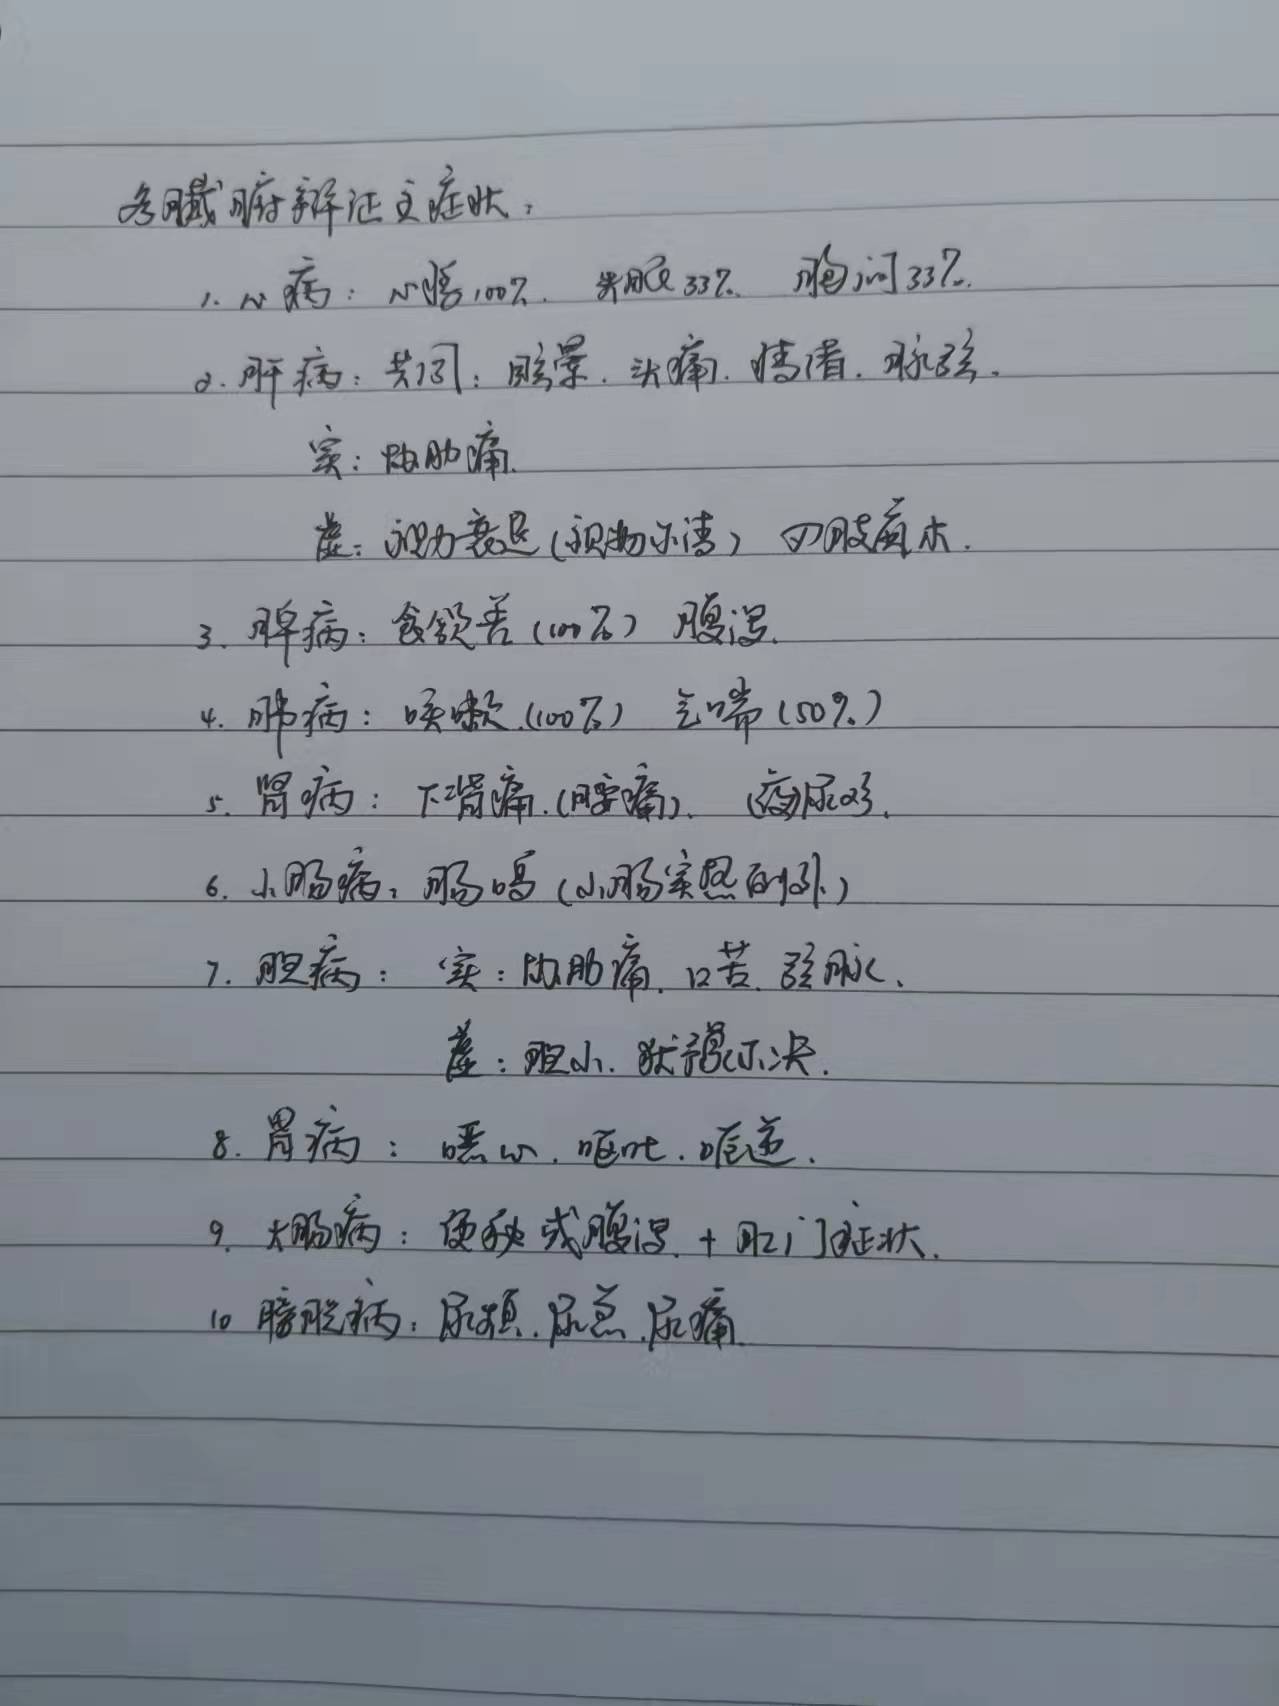 各臟腑辩证主症状：
1. 心病：心悸100%. 失眠33%. 胸闷33%.
2. 肝病：共同：眩晕. 头痛. 情绪. 脉弦.
实：胁肋痛.
虚：视力衰退(视物不清) 四肢麻木.
3. 脾病：食欲差(100%) 腹泻.
4. 肺病：咳嗽.(100%) 气喘(50%)
5. 肾病：下背痛.(腰痛). (夜)尿多.
6. 小肠病：肠鸣(小肠实热例外)
7. 胆病：实：胁肋痛. 口苦. 弦脉.
虚：胆小. 犹豫不决.
8. 胃病：噁心. 呕吐. 呃逆.
9. 大肠病：便秘或腹泻. + 肛门症状.
10 膀胱病：尿频. 尿急. 尿痛.